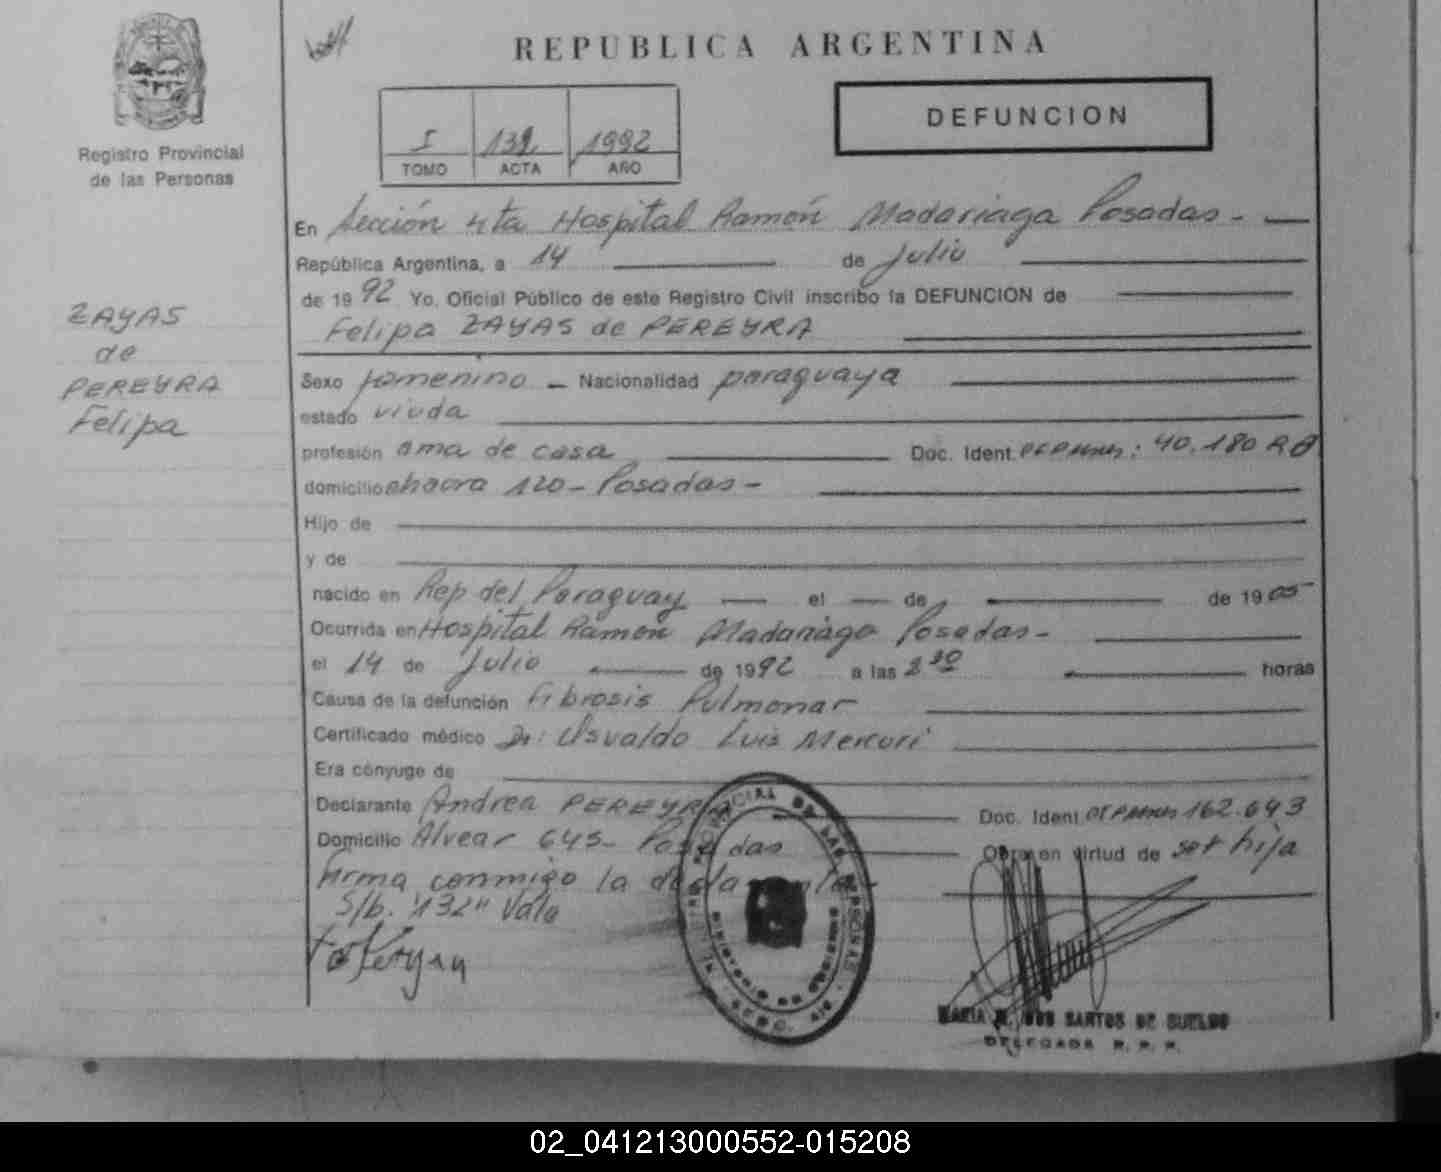 REPUBLICA ARGENTINA
Registro Provincial
de las Personas
I 132 1992
TOMO ACTA AÑO
DEFUNCION
ZAYAS
de
PEREYRA
Felipa
En Sección 4ta Hospital Ramón Madariaga Posadas-
República Argentina, a 14 de Julio
de 1992 Yo, Oficial Público de este Registro Civil inscribo la DEFUNCION de
Felipa ZAYAS de PEREYRA
Sexo femenino - Nacionalidad paraguaya
estado viuda
profesión ama de casa Doc. Ident. : 40.180
domicilio chacra 120- Posadas-
Hijo de
y de
nacido en Rep del Paraguay el de de 1905
Ocurrida en Hospital Ramón Madariaga Posadas-
el 14 de Julio de 1992 a las 2 30 horas
Causa de la defunción Fibrosis Pulmonar
Certificado médico Dr: Osvaldo Luis Mercuri
Era cónyuge de
Declarante Andrea PEREYRA Doc. Ident. 162.643
Domicilio Alvear 645- Posadas Obra en virtud de ser hija
firma conmigo la declarante-
S/b. "132" Vale
MARIA DOS SANTOS DE
DELEGADA R. P. P.
02_041213000552-015208